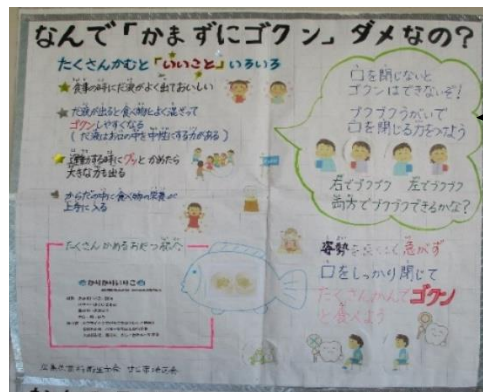 なんで「かまずにゴクン」ダメなの？
たくさんかむと「いいこと」いろいろ
食事の時にだ液がよく出ておいしい
だ液が出ると食べ物とよく混ざって
ゴクンしやすくなる
(だ液はお口の中を中性にする力がある)
運動する時にグッとかめたら
大きな力も出る
からだの中に食べ物の栄養が
上手に入る
口を閉じないと
ゴクンはできないぞ！
ブクブクうがいで
口を閉じる力をつけよう
右でブクブク 左でブクブク
両方でブクブクできるかな？
たくさんかめるおやつ
かりかりいりこ
姿勢を 急がず
口をしっかり閉じて
たくさんかんでゴクン
と食べよう